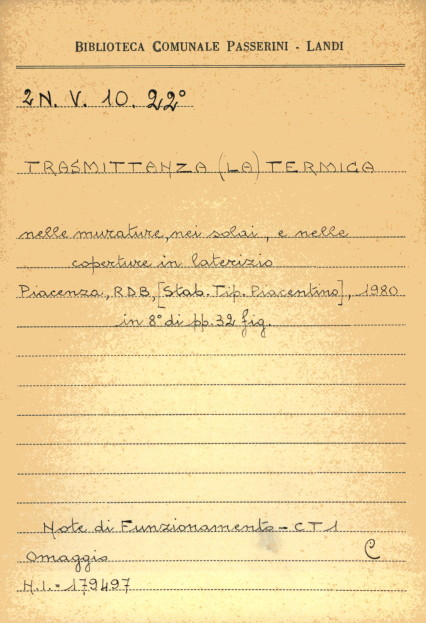 BIBLIOTECA COMUNALE PASSERINI - LANDI
2N. V. 10. 22°
TRASMITTANZA (LA) TERMICA
nelle murature, nei solai, e nelle
coperture in laterizio
Piacenza, RDB, [Stab. Tip. Piacentino], 1980
in 8° di pp. 32 fig.
Note di Funzionamento - CT1
Omaggio C
N.I. = 179497